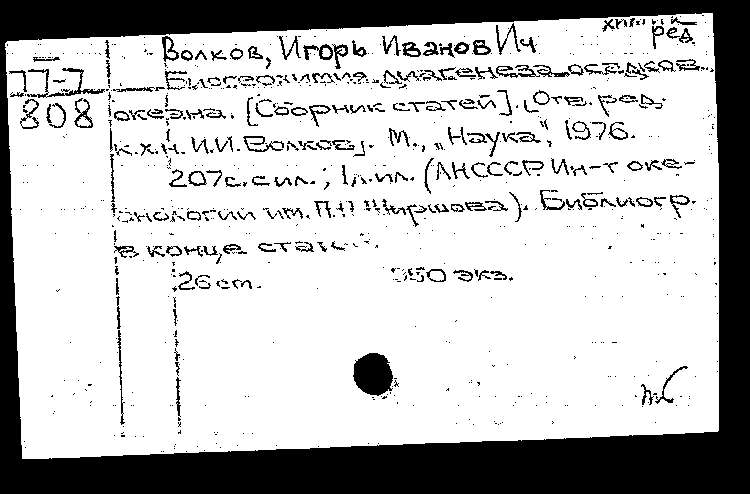 химик
ред.
Волков, Игорь Иванович
77-7
Биогеохимия диагенеза осадков
808
океана. [Сборник статей]. [Отв. ред.
к.х.н. И.И. Волков]. М., „Наука", 1976.
207с. с ил.; 1л. ил. (АН СССР. Ин-т оке-
анологии им. П.П. Ширшова). Библиогр.
в конце статей.
26 см. 950 экз.